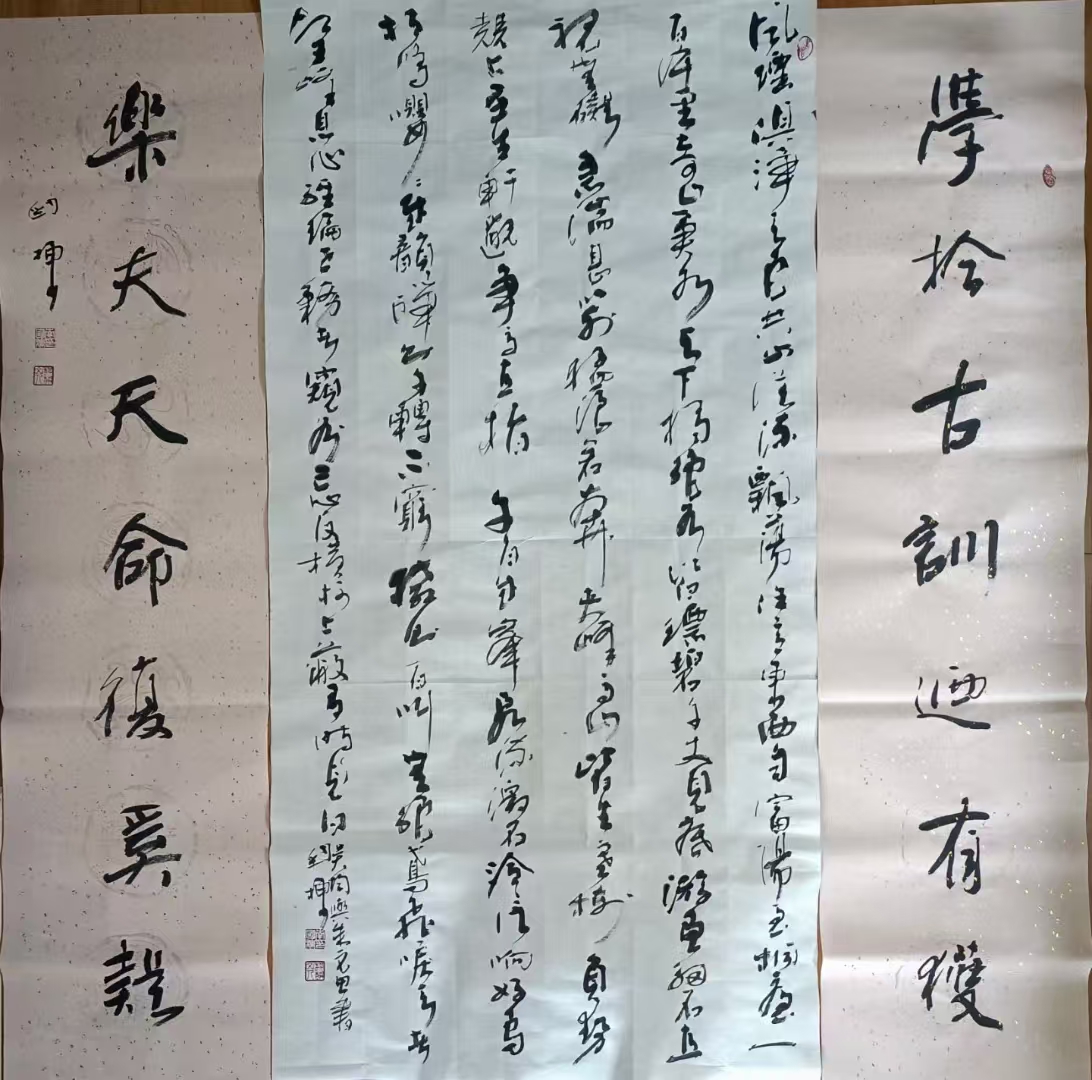 學扵古訓迺有獲
風煙俱淨天色共山從流飄蕩任意東西自富陽至桐廬一
百許里奇山異水天下獨絕水皆縹碧千丈見底游魚細石直
視無礙急湍甚箭猛浪若奔夾峰高山皆生寒樹負勢
競上互生軒邈爭高直指千百成峯泉流激石泠作响好鳥
相鳴嚶〻成韻蟬則千轉不窮猿則百叫無絕鳶飛唳天者
望峰息心經綸世務者窺谷忘反橫柯上蔽有時見日
吳均與朱元思書
樂夫天命復奚疑